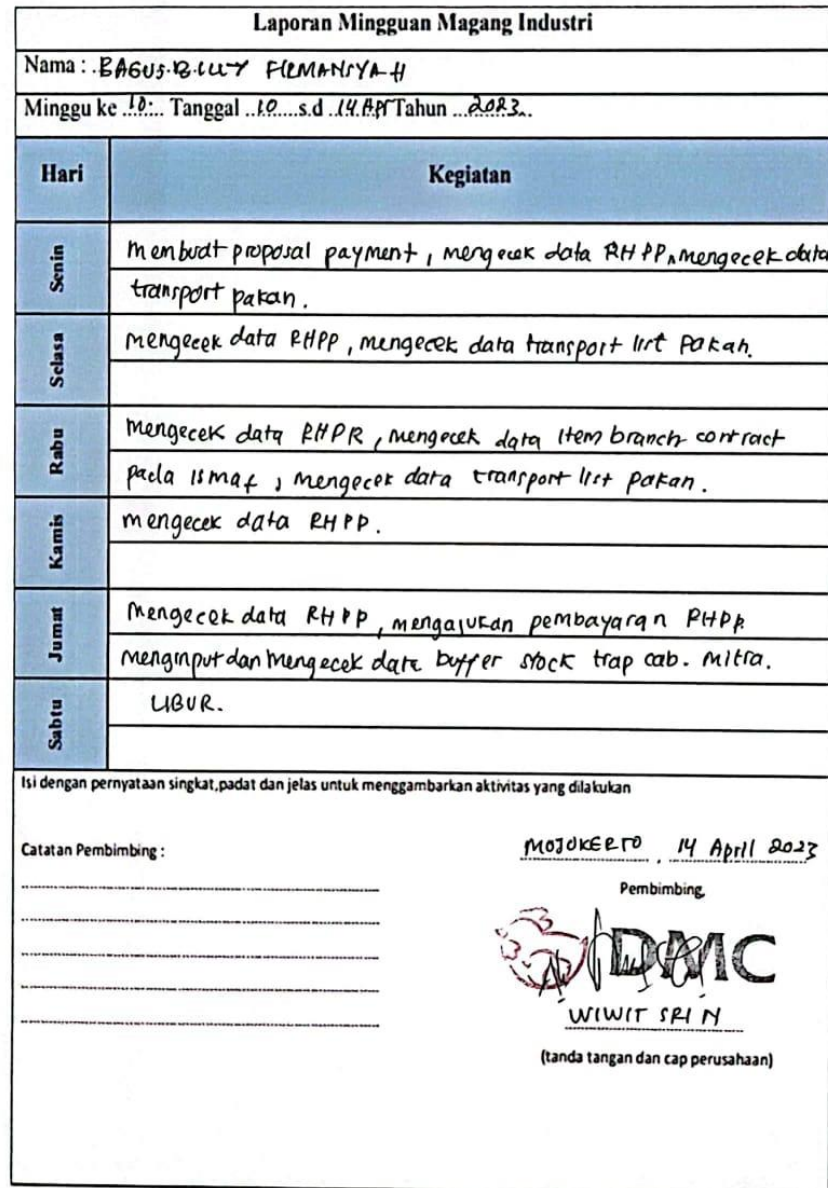 Laporan Mingguan Magang Industri
Nama : BAGUS BILLY FIRMANSYAH
Minggu ke 10 Tanggal 10 s.d 14 Apr Tahun 2023
Hari Kegiatan
Senin
Membuat proposal payment, mengecek data RHPP, mengecek data
transport pakan.
Selasa
mengecek data RHPP, mengecek data transport list pakan.
Rabu
Mengecek data RHPP, mengecek data item branch contract
pada ismaf, mengecek data transport list pakan.
Kamis
mengecek data RHPP.
Jumat
Mengecek data RHPP, mengajukan pembayaran RHPP
menginput dan mengecek data buffer stock trap cab. mitra.
Sabtu
LIBUR.
Isi dengan pernyataan singkat,padat dan jelas untuk menggambarkan aktivitas yang dilakukan
Catatan Pembimbing :
MOJOKERTO , 14 April 2023
Pembimbing,
DMC
WIWIT SRI N
(tanda tangan dan cap perusahaan)